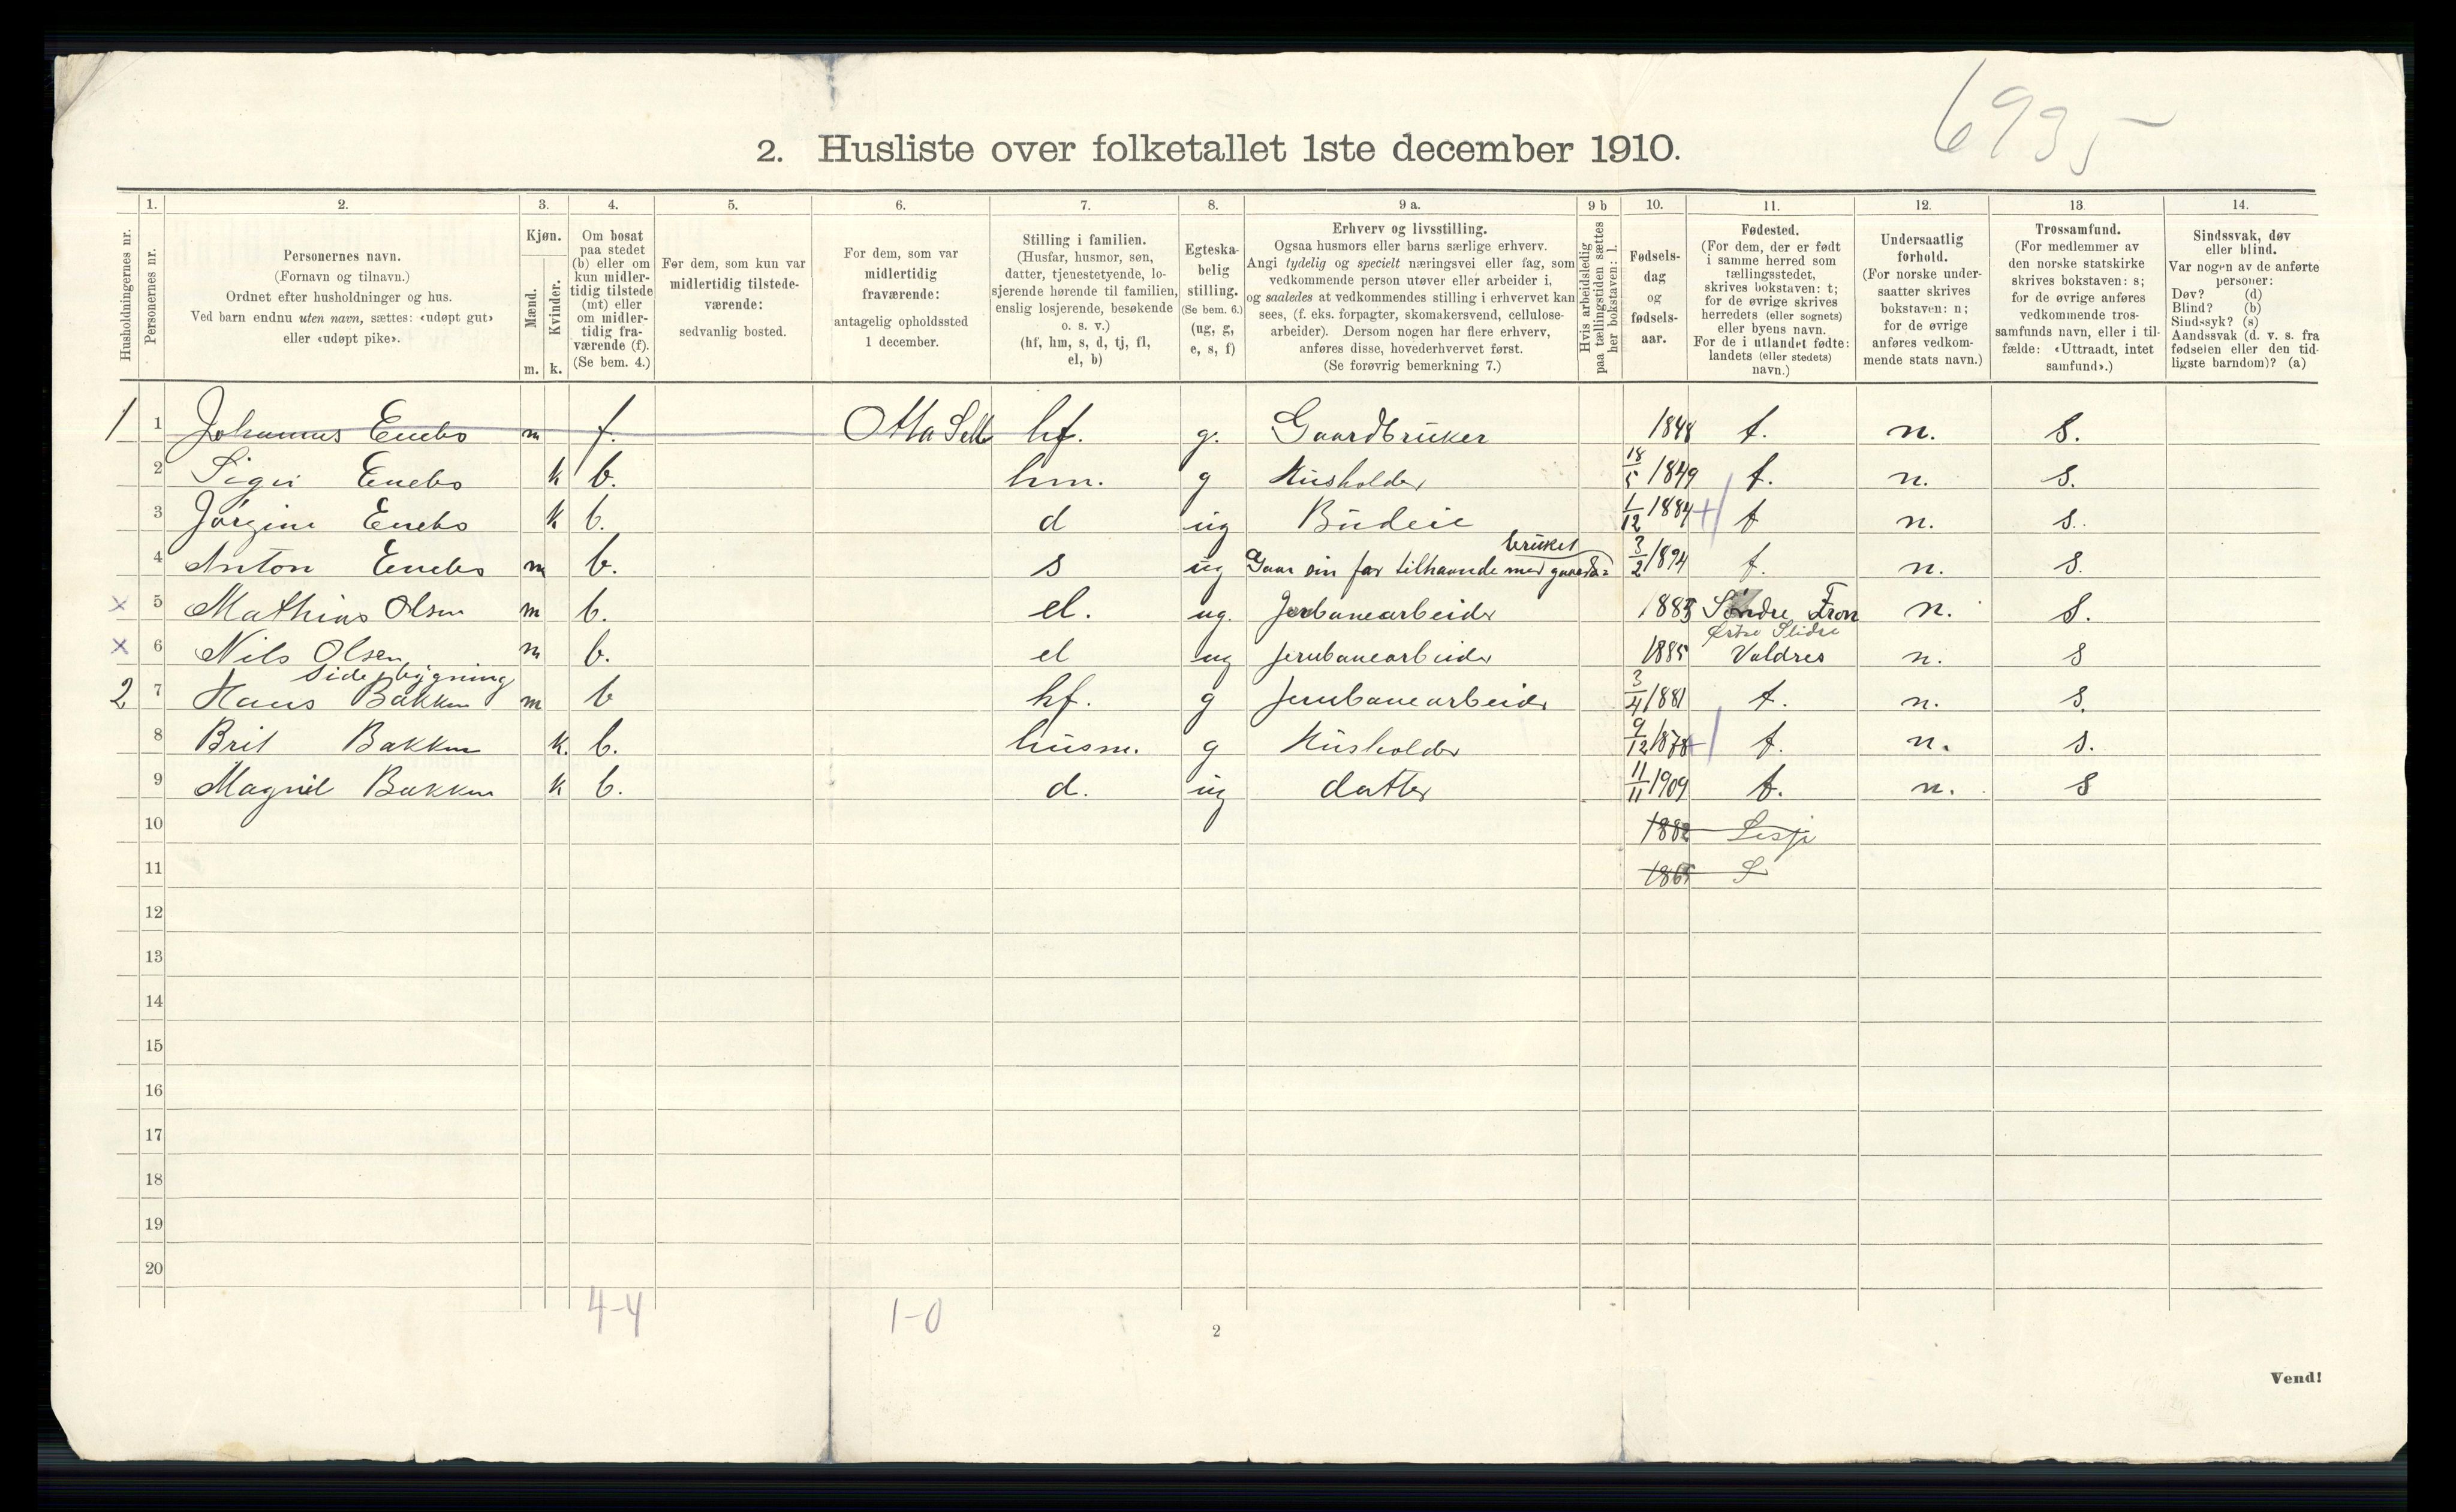 6935
2. Husliste over folketallet 1ste december 1910.
1. 2. 3. 4. 5. 6. 7. 8. 9 a. 9 b 10. 11. 12. 13 14.
Husholdningernes nr.
Personernes nr.
Personernes navn.
(Fornavn og tilnavn.)
Ordnet efter husholdninger og hus.
Ved barn endnu uten navn, sættes: «udøpt gut»
eller «udøpt pike».
Kjøn.
Mænd.
Kvinder.
m. k.
Om bosat
paa stedet
(b) eller om
kun midler-
tidig tilstede
(mt) eller
om midler-
tidig fra-
værende (f).
(Se bem. 4.)
For dem, som kun var
midlertidig tilstede-
værende:
sedvanlig bosted.
For dem, som var
midlertidig
fraværende:
antagelig opholdssted
1 december.
Stilling i familien.
(Husfar, husmor, søn,
datter, tjenestetyende, lo-
sjerende hørende til familien,
enslig losjerende, besøkende
o. s. v.)
(hf, hm, s, d, tj, fl,
el, b)
Egteska-
belig
stilling.
(Se bem. 6.)
(ug, g,
e, s, f)
Erhverv og livsstilling.
Ogsaa husmors eller barns særlige erhverv.
Angi tydelig og specielt næringsvei eller fag, som
vedkommende person utøver eller arbeider i,
og saaledes at vedkommendes stilling i erhvervet kan
sees, (f. eks. forpagter, skomakersvend, cellulose-
arbeider). Dersom nogen har flere erhverv,
anføres disse, hovederhvervet først.
(Se forøvrig bemerkning 7.)
Hvis arbeidsledig
paa tællingstiden sættes
her bokstaven: l.
Fødsels-
dag
og
fødsels-
aar.
Fødested.
(For dem, der er født
i samme herred som
tællingsstedet,
skrives bokstaven: t;
for de øvrige skrives
herredets (eller sognets)
eller byens navn.
For de i utlandet fødte:
landets (eller stedets)
navn.)
Undersaatlig
forhold.
(For norske under-
saatter skrives
bokstaven: n;
for de øvrige
anføres vedkom-
mende stats navn.)
Trossamfund.
(For medlemmer av
den norske statskirke
skrives bokstaven: s;
for de øvrige anføres
vedkommende tros-
samfunds navn, eller i til-
fælde: «Uttraadt, intet
samfund».)
Sindssvak, døv
eller blind.
Var nogen av de anførte
personer:
Døv? (d)
Blind? (b)
Sindssyk? (s)
Aandssvak (d. v. s. fra
fødselen eller den tid-
ligste barndom)? (a)
1 1 Johannes Enebo m f. Otta Sell hf. g. Gaardbruker 1848 t. n. s.
2 Enebo k b. hm. g Husholder 18/5 1849 t. n. s.
3 Jørgine Enebo k b. d ug Budeie 1/12 1884 + t n. s.
bruket
4 Anton Enebo m b. s ug Gaar sin far tilhaande med gaards= 3/2 1894 t. n. s.
x 5 Mathias Olsen m b. el. ug. Jernbanearbeider 1885 Søndre Fron n. s.
Østre Slidre
x 6 Nils Olsen m b. el ug Jernbanearbeider 1885 Valdres n. s
Sidebygning
2 7 Hans Bakken m b hf. g Jernbanearbeider 3/4 1881 t. n. s.
8 Brit Bakken k. b. husm. g Husholder 9/12 1878 + t. n. s.
9 Magnil Bakken k b. d. ug datter 11/11 1909 t. n. s
10 1882 Lesje
11 1865 S
12
13
14
15
16
17
18
19
20
4-4 1-0
2
Vend!